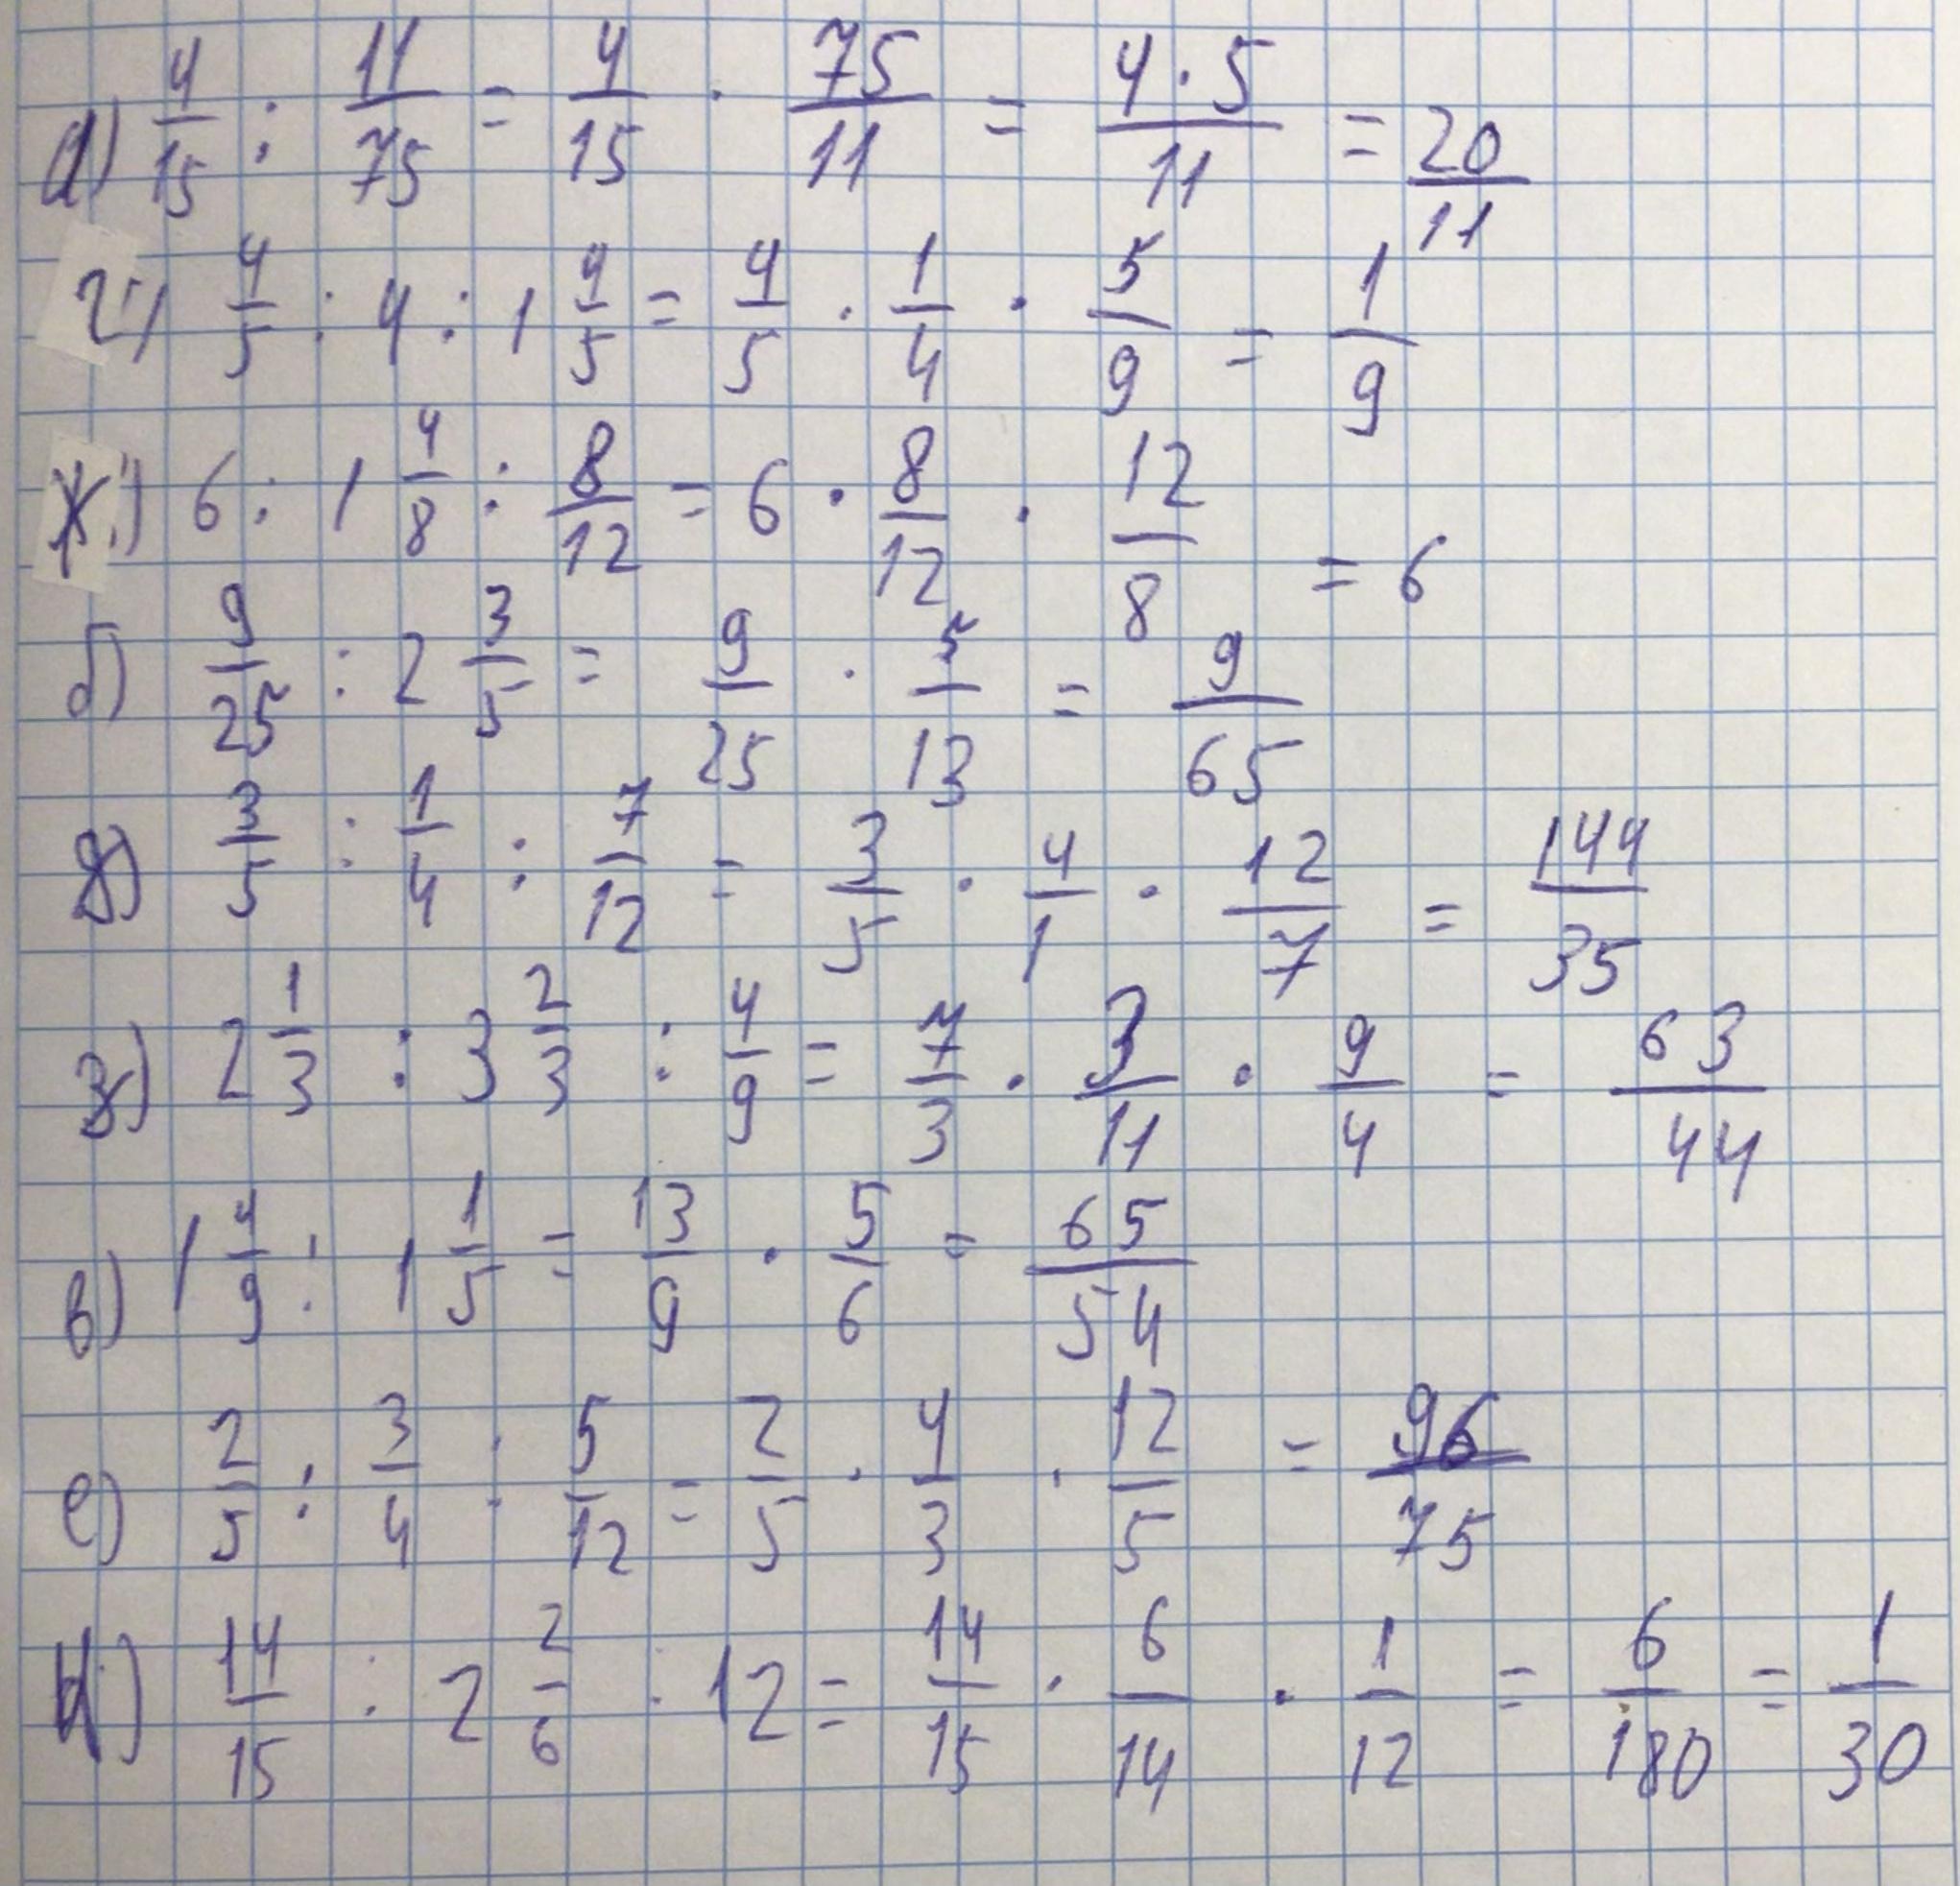 а) 4/15 : 11/75 = 4/15 · 75/11 = 4·5/11 = 20/11
г) 4/5 : 4 : 1 4/5 = 4/5 · 1/4 · 5/9 = 1/9
ж) 6 : 1 4/8 : 8/12 = 6 · 8/12 · 12/8 = 6
б) 9/25 : 2 3/5 = 9/25 · 5/13 = 9/65
д) 3/5 : 1/4 : 7/12 = 3/5 · 4/1 · 12/7 = 144/35
з) 2 1/3 : 3 2/3 : 4/9 = 7/3 · 3/11 · 9/4 = 63/44
в) 1 4/9 : 1 1/5 = 13/9 · 5/6 = 65/54
е) 2/5 : 3/4 : 5/12 = 2/5 · 4/3 · 12/5 = 96/75
и) 14/15 : 2 2/6 : 12 = 14/15 · 6/14 · 1/12 = 6/180 = 1/30